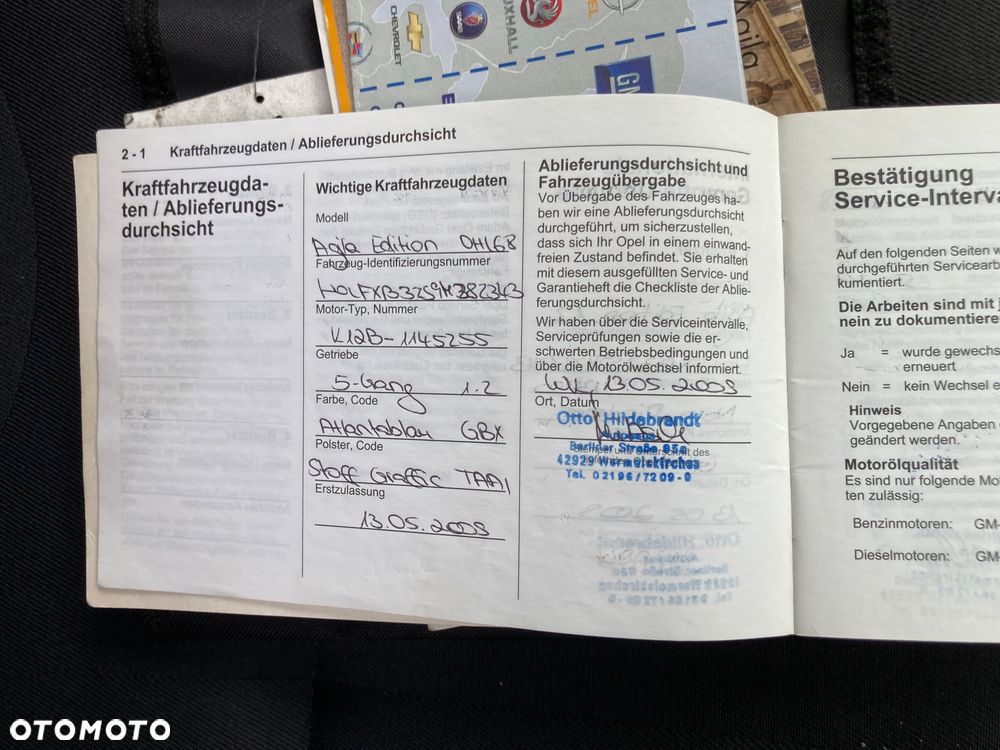 CHEVROLET
SAAB
VAUXHALL
OPEL
GM
Agila
2 - 1 Kraftfahrzeugdaten / Ablieferungsdurchsicht
Kraftfahrzeugda-
ten / Ablieferungs-
durchsicht
Wichtige Kraftfahrzeugdaten
Modell
Agila Edition OHL68
Fahrzeug-Identifizierungsnummer
Motor-Typ, Nummer
K12B-1145255
Getriebe
5-Gang 1.2
Farbe, Code
Atlantablau GBX
Polster, Code
Stoff Graffic TAA1
Erstzulassung
13.05.2009
Ablieferungsdurchsicht und
Fahrzeugübergabe
Vor Übergabe des Fahrzeuges ha-
ben wir eine Ablieferungsdurchsicht
durchgeführt, um sicherzustellen,
dass sich Ihr Opel in einem einwand-
freien Zustand befindet. Sie erhalten
mit diesem ausgefüllten Service- und
Garantieheft die Checkliste der Ablie-
ferungsdurchsicht.
Wir haben über die Serviceintervalle,
Serviceprüfungen sowie die er-
schwerten Betriebsbedingungen und
über die Motorölwechsel informiert.
WK, 13.05.2009
Ort, Datum
Otto Hildebrandt
Autohaus
Berliner Straße 85e
Stempel und Unterschrift des
42929 Wermelskirchen
Tel. 02196/7209-0
Bestätigung
Service-Interva
Auf den folgenden Seiten w
durchgeführten Servicearb
kumentiert.
Die Arbeiten sind mit j
nein zu dokumentiere
Ja = wurde gewechs
erneuert
Nein = kein Wechsel e
Hinweis
Vorgegebene Angaben
geändert werden.
Motorölqualität
Es sind nur folgende Mo
ten zulässig:
Benzinmotoren: GM-
Dieselmotoren: GM-
OTOMOTO